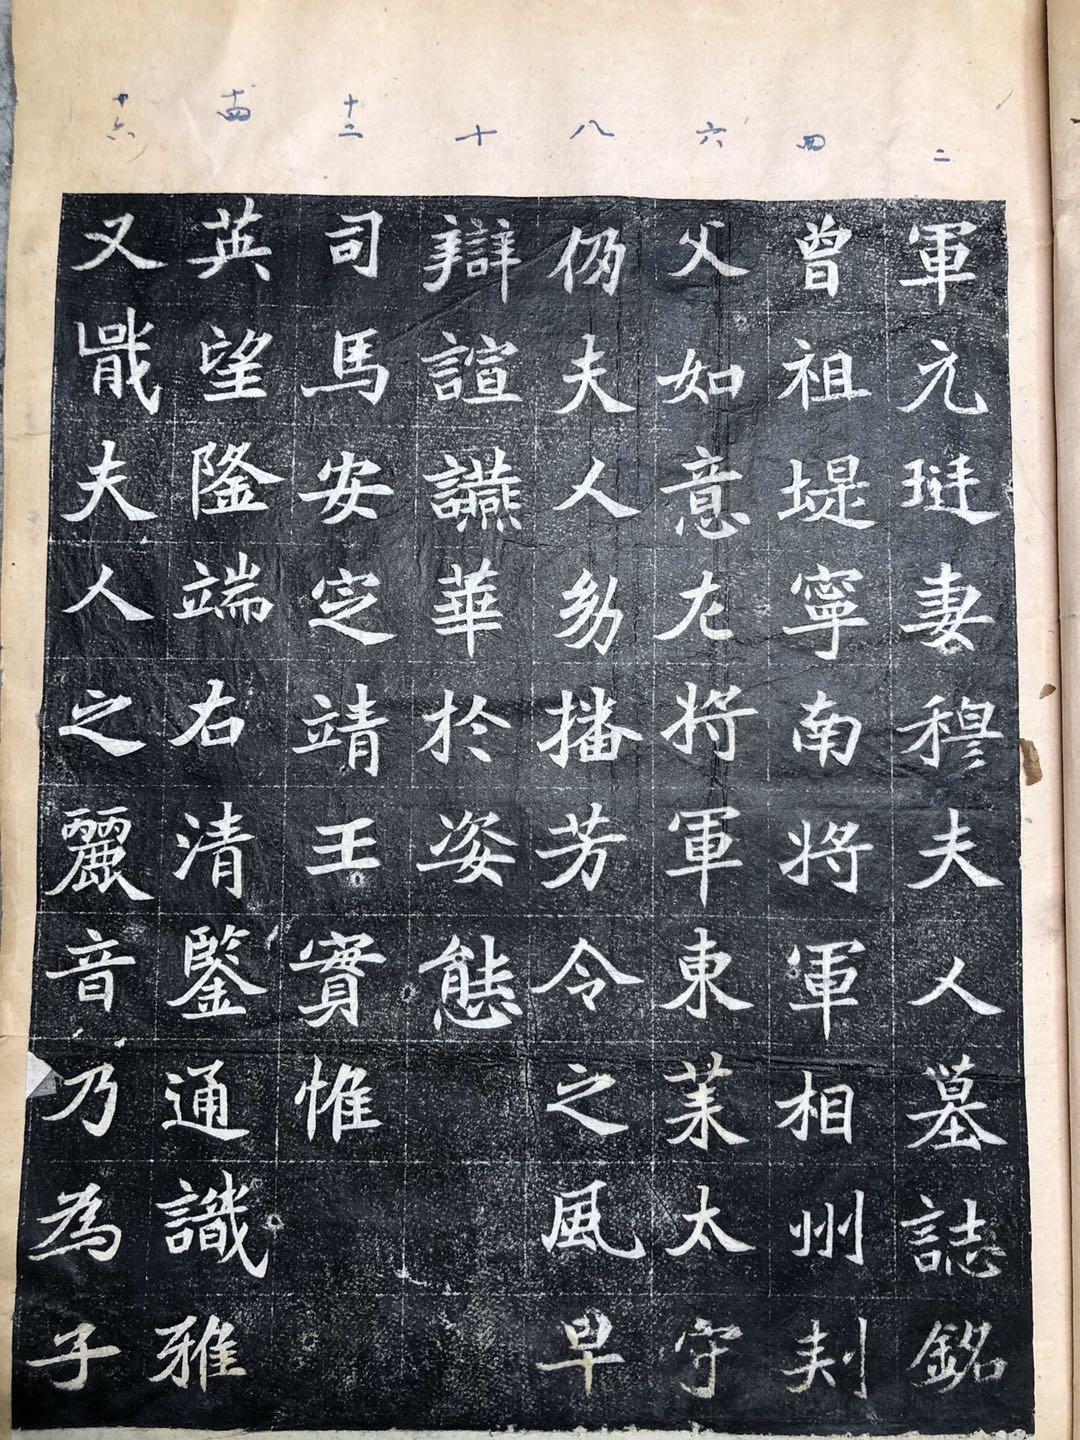 二
四
六
八
十
十二
十四
十六
軍元珽妻穆夫人墓誌銘
曾祖堤寧南將軍相州刾
父如意左將軍東莱太守
仍夫人幼播芳令之風早
辯諠讌華於姿態
司馬安定靖王實惟
英望隆端右清鑒通識雅
又戢夫人之麗音乃為子